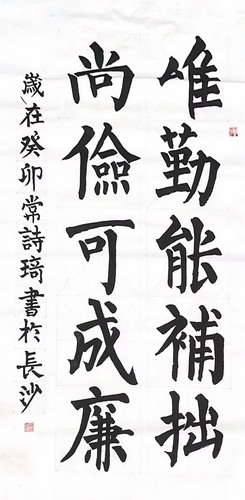 唯勤能補拙
尚儉可成廉
歲在癸卯常詩琦書於長沙